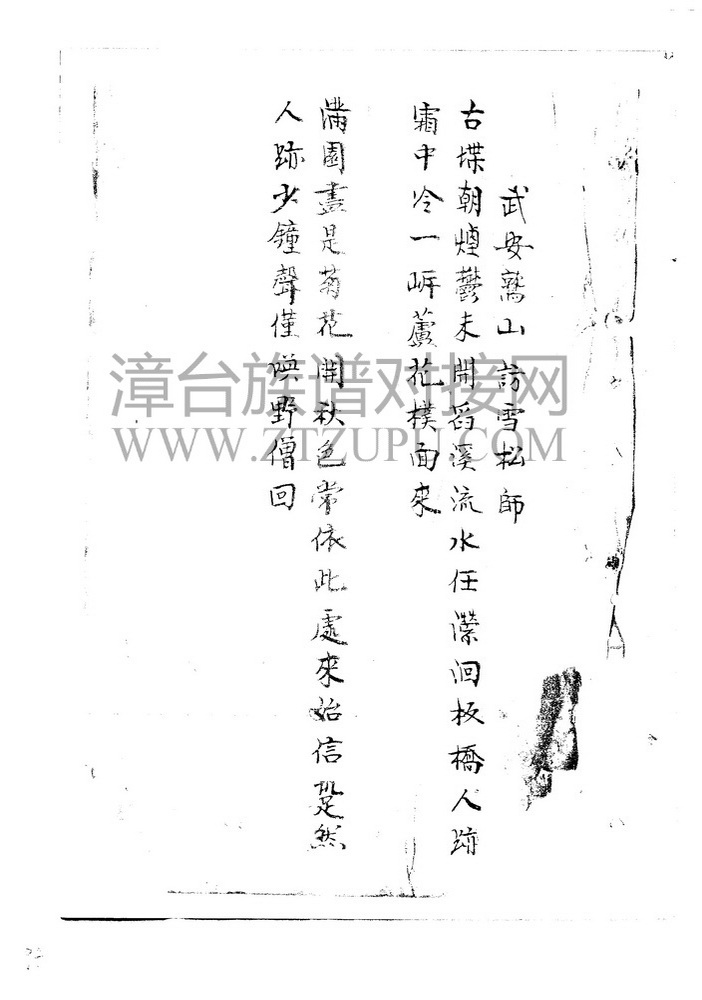 武安鷲山訪雪松師
古堞朝煙鬱未開滔溪流水任瀠洄板橋人跡
霜中冷一岍蘆花樸面來
滿園盡是菊花開秋色常依此處來始信跫然
人跡少鐘聲僅喚野僧回
漳台族谱对接网
WWW.ZTZUPU.COM